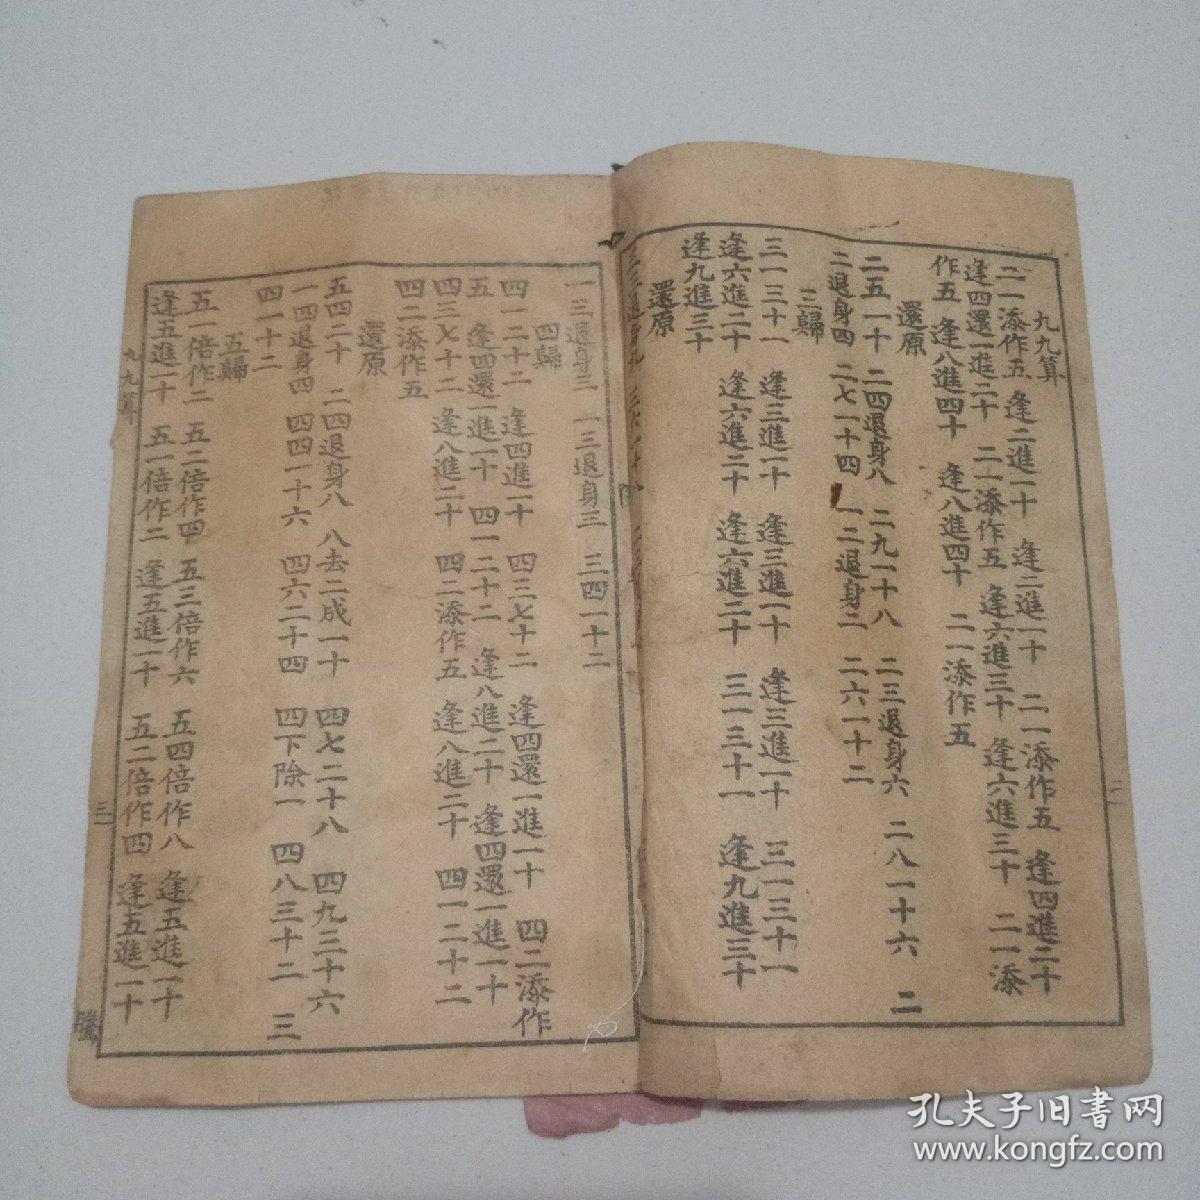 九九算
二一添作五 逢二進一十 逢二進一十 二一添作五 逢四進二十
逢四還一進二十 二一添作五 逢六進三十 逢六進三十 二一添
作五 逢八進四十 逢八進四十 二一添作五
還原
二五一十 二四退身八 二九一十八 二三退身六 二八一十六 二
二退身四 二七一十四 一二退身二 二六一十二
三歸
三一三十一 逢三進一十 逢三進一十 逢三進一十 三一三十一
逢六進二十 逢六進二十 逢六進二十 三一三十一 逢九進三十
逢九進三十
還原
二
一三退身三 一三退身三 三四一十二
四歸
四一二十二 逢四進一十 四三七十二 逢四還一進一十 四二添作
五 逢四還一進一十 四一二十二 逢八進二十 逢四還一進一十
四三七十二 逢八進二十 四二添作五 逢八進二十 四一二十二
四二添作五
還原
五四二十 二四退身八 八去二成一十 四七二十八 四九三十六
一四退身四 四四一十六 四六二十四 四下除一 四八三十二 三
四一十二
五歸
五一倍作二 五二倍作四 五三倍作六 五四倍作八 逢五進一十
逢五進一十 五一倍作二 逢五進一十 五二倍作四 逢五進一十
九九算
三
孔夫子旧書网
www.kongfz.com